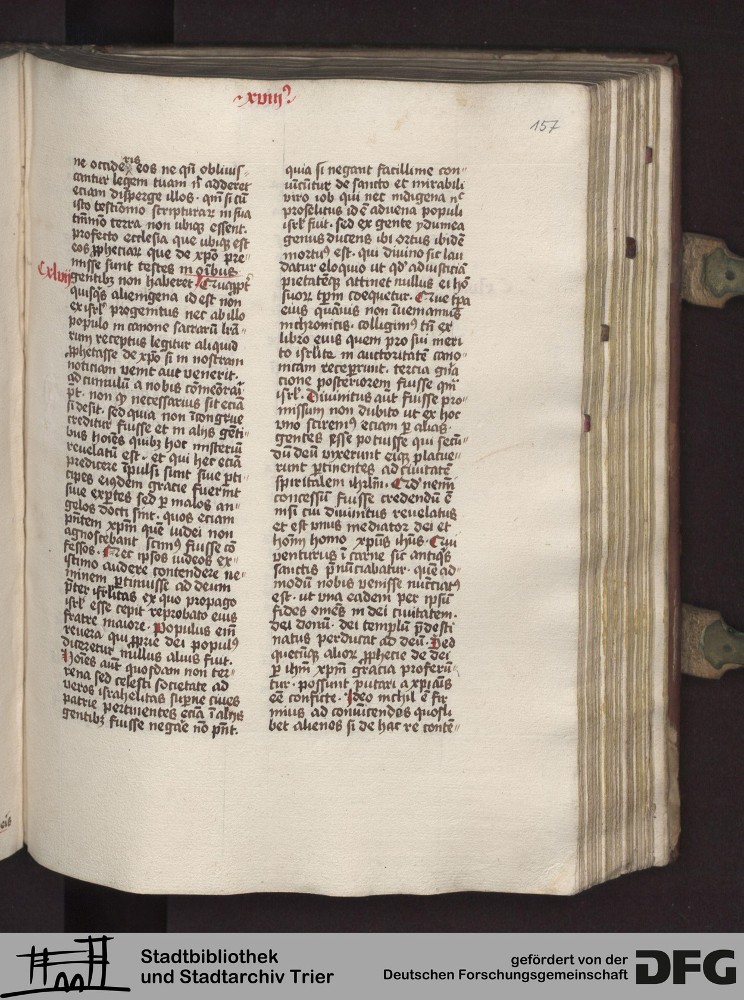 xviijꝰ
157
ne occide xis eos ne qñ obliuis-
cantur legem tuam nͥ adderet
etiam disperge illos. qm̄ si cū
isto testīomo scripturaꝝ in sua
tm̄mō terra non ubiqꝫ essent.
profecto ecclesia que ubiqꝫ est
eos ꝓphetiaꝝ que de xp̄o pre-
misse sunt testes in oībus
gentibꝫ non haberet. Cxlvij Quapp̄t
quisqͣs alienigena id est non
ex isrl̄ progenitus nec ab illo
populo in canone sacraꝝ lrā-
rum receptus legitur aliquid
ꝓphetasse de xp̄o si in nostram
noticiam venit aut venerit.
ad cumulū a nobis cōmēorai
pt̄. non qͦ necessarius sit etiā
si desit. sed quia non īcongrue
creditur fuisse et in alijs gēti-
bus hoīes quibꝫ hoc misteriū
reuelatū est. et qui hec etiā
predicere īpulsi sunt siue ꝑti-
cipes eiusdem gracie fuerīnt
siue exꝑtes sed ꝑ malos an-
gelos docti sint. quos etiam
pn̄tem xp̄m quē iudei non
agnoscebant scimꝰ fuisse cō
fessos. Nec ip̄sos iudeos ex-
istimo audere contendere ne-
minem ꝑtinuisse ad deum
p̄ter isrl̄itas ex quo propago
isrl̄ esse cepit reprobato eius
fratre maiore. Populus em̄
reuera qui ꝓprie dei populꝰ
diceretur nullus alius fuit.
Hoīes aūt quosdam non ter-
rena sed celesti societate ad
veros israhelitas suꝑne ciues
patrie pertinentes etiā ī alijs
gentibꝫ fuisse negare nō pn̄t.
quia si negant facillime con-
uīcūtur de sancto et mirabili
viro iob qui nec indigena nͨ
proselitus id ē aduena populi
isrl̄ fuit. sed ex gente ydumea
genus ducens ibi ortus ibidē
mortuꝰ est. qui diuino sic lau
datur eloquio ut qd̄ ad iusticiā
pietatēqꝫ attinet nullus ei hō
suoꝝ tp̄m coequetur. Que tp̄a
eius quāuis non īueniamus
in chronicis. colligimꝰ tn̄ ex
libro eius quem pro sui meri
to isrl̄ite in auctoritatē cano-
nicam receꝑunt. tercia gn̄a
cione posteriorem fuisse qm̄
isrl̄. Diuinitus aūt fuisse pro-
missum non dubito ut ex hoc
vno sciremꝰ etiam ꝑ alias
gentes esse potuisse qui secū-
dū deū vixerunt eiqꝫ placue-
runt ꝑtinentes ad ciuitatē
spiritalem ihrl̄m. Qd̄ nemī
concessū fuisse credendū ē
nisi cui diuinitus reuelatus
et est vnus mediator dei et
hoīm homo xp̄us ihūs. Qui
venturus ī carne sic antiqͥs
sanctis p̄nūciabatur. quē ad-
modū nobis venisse nūciatꝰ
est. ut vna eadem per ip̄sū
fides omēs in dei ciuitatem.
dei domū. dei templū p̄desti
natus perducat ad deū. Sed
quecūqꝫ alioꝝ ꝓphetie de dei
ꝑ ihm̄ xp̄m gracia proferū-
tur. possunt putari a xp̄ianis
eē conficte. Ideo nichil ē fir
mius ad conuīcendos quosli
bet alienos si de hac re contē-
eis
Stadtbibliothek
und Stadtarchiv Trier
gefördert von der
Deutschen Forschungsgemeinschaft
DFG